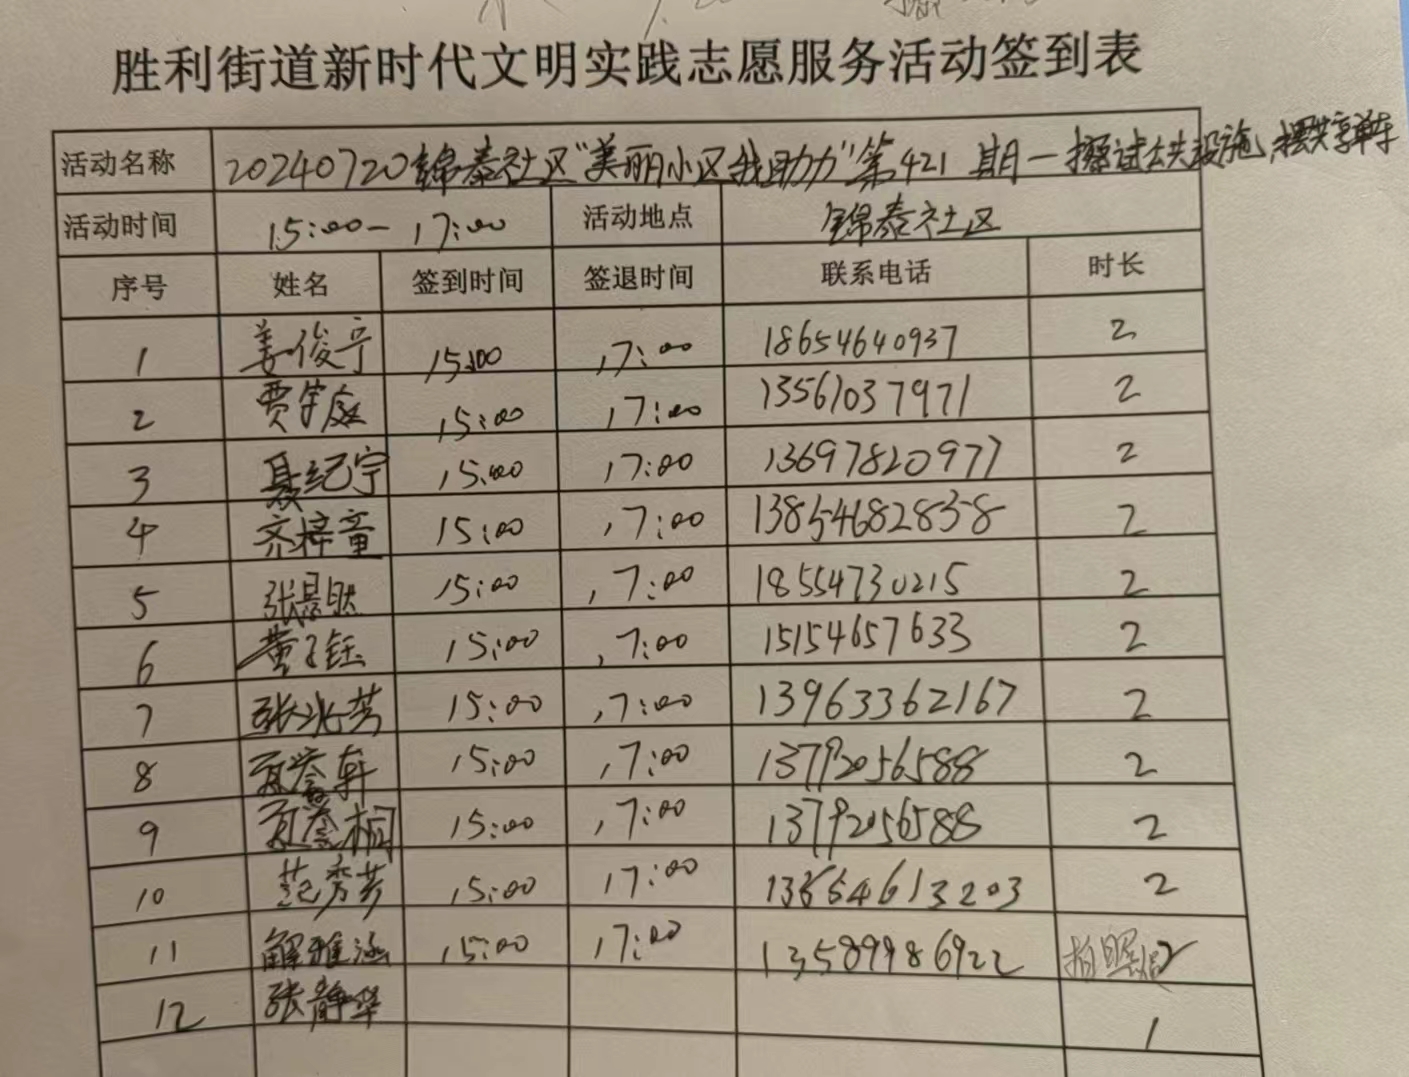 胜利街道新时代文明实践志愿服务活动签到表
活动名称 20240720锦泰社区“美丽小区我助力”第421期—擦拭公共设施,摆共享单车
活动时间 15:00-17:00 活动地点 锦泰社区
序号 姓名 签到时间 签退时间 联系电话 时长
1 姜俊宁 15:00 17:00 18654640937 2
2 贾宇庭 15:00 17:00 13561037971 2
3 聂纪宇 15:00 17:00 13697820977 2
4 齐梓童 15:00 17:00 13854682838 2
5 张景 15:00 17:00 18554730215 2
6 黄子钰 15:00 17:00 15154657633 2
7 张兆芳 15:00 17:00 13963362167 2
8 夏誉轩 15:00 17:00 13792056588 2
9 夏誉桐 15:00 17:00 13792056588 2
10 范秀芳 15:00 17:00 2
11 解雅涵 15:00 17:00 13589986922 拍照 2
12 张静华 1